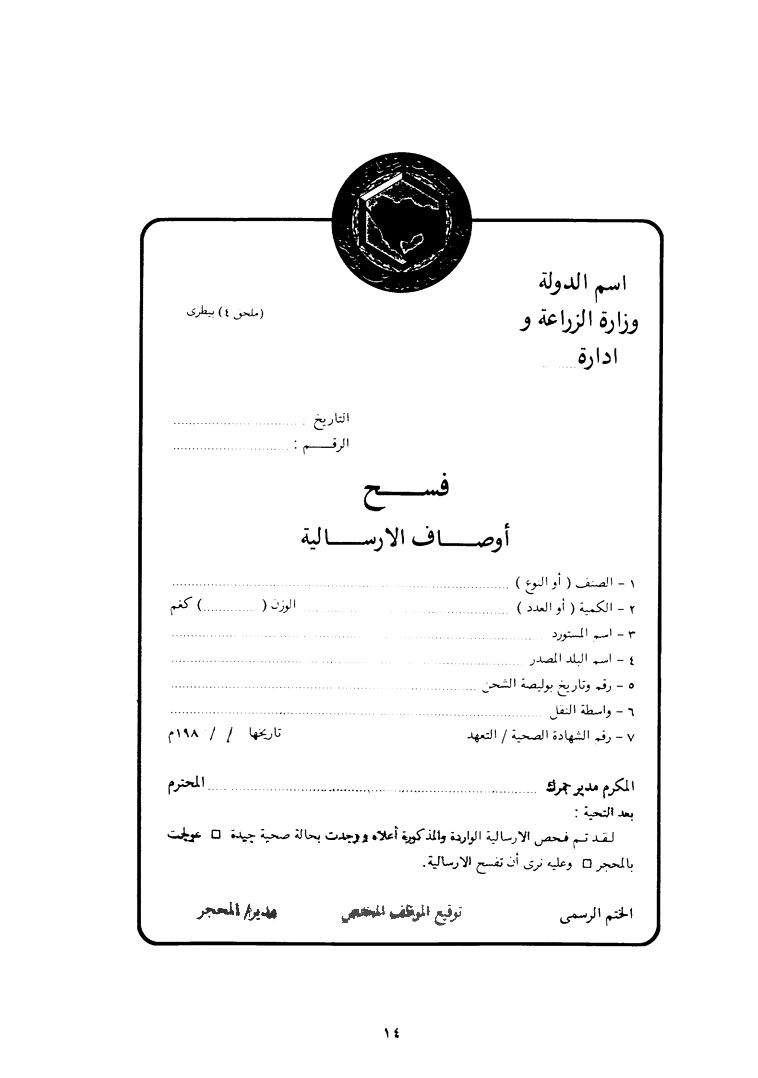 اسم الدولة
وزارة الزراعة و
(ملحق ٤) بيطرى
ادارة ........
التاريخ : ..............................
الرقـــم : ..............................
فســـــح
أوصـــاف الارســـالية
١ – الصنف ( أو النوع ) ..............................
٢ – الكمية ( أو العدد ) .............................. الوزن ( ..............) كغم
٣ – اسم المستورد ..............................
٤ – اسم البلد المصدر ..............................
٥ – رقم وتاريخ بوليصة الشحن ..............................
٦ – واسطة النقل ..............................
٧ – رقم الشهادة الصحية / التعهد تاريخها / / ١٩٨م
المكرم مدير جمرك .............................. المحترم
بعد التحية :
لـقـد تـم فـحص الارسالية الواردة والمذكورة أعلاه ووجدت بحالة صحية جيدة □ عولجت
بالمحجر □ وعليه نرى أن تفسح الارسالية.
الختم الرسمى توقيع الموظف المختص مدير/ المحجر
١٤